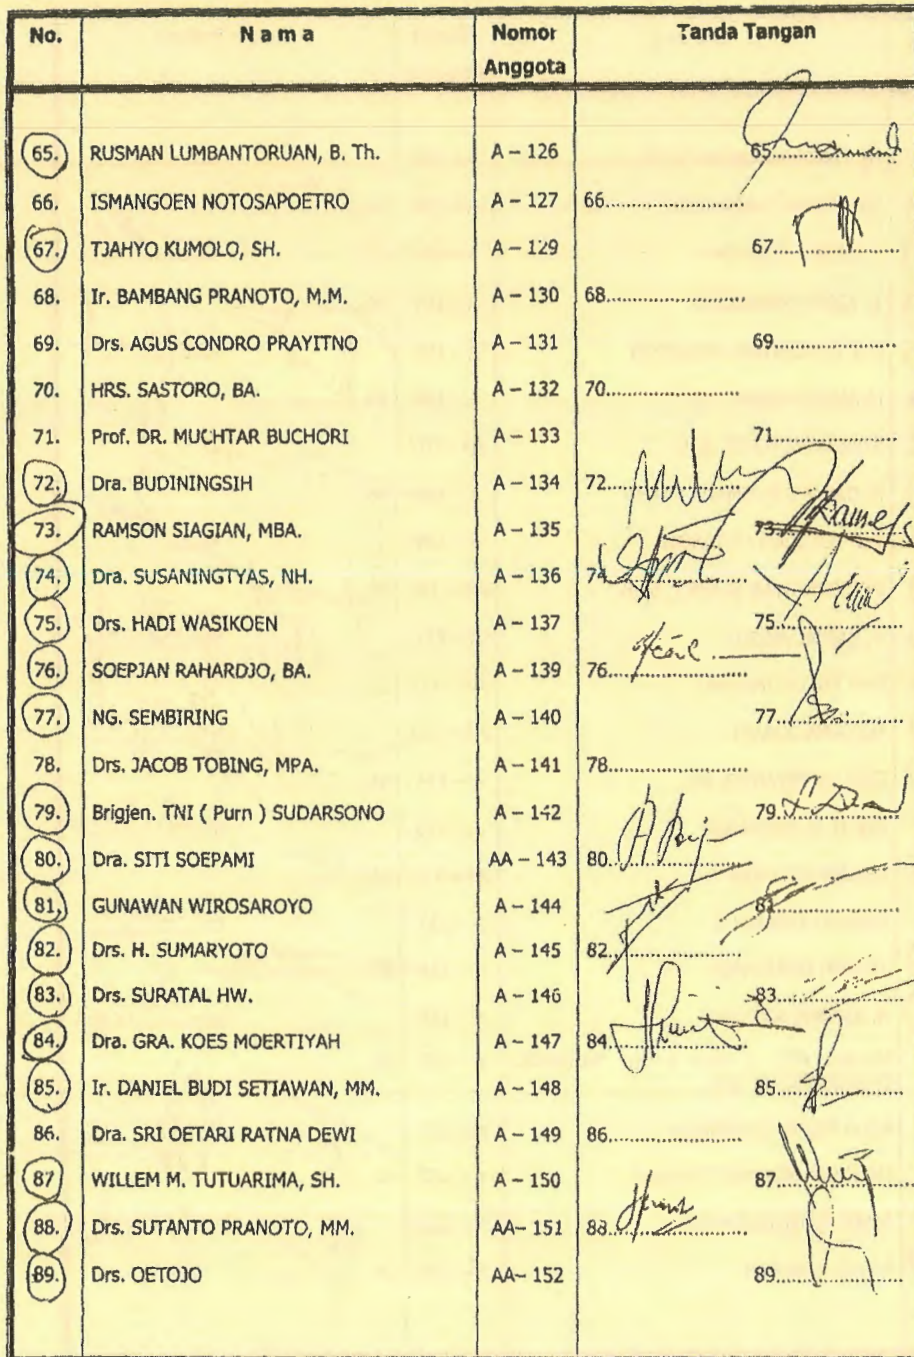 No. N a m a Nomor Anggota Tanda Tangan
65. RUSMAN LUMBANTORUAN, B. Th. A – 126 65....................
66. ISMANGOEN NOTOSAPOETRO A – 127 66....................
67. TJAHYO KUMOLO, SH. A – 129 67....................
68. Ir. BAMBANG PRANOTO, M.M. A – 130 68....................
69. Drs. AGUS CONDRO PRAYITNO A – 131 69....................
70. HRS. SASTORO, BA. A – 132 70....................
71. Prof. DR. MUCHTAR BUCHORI A – 133 71....................
72. Dra. BUDININGSIH A – 134 72....................
73. RAMSON SIAGIAN, MBA. A – 135 73....................
74. Dra. SUSANINGTYAS, NH. A – 136 74....................
75. Drs. HADI WASIKOEN A – 137 75....................
76. SOEPJAN RAHARDJO, BA. A – 139 76....................
77. NG. SEMBIRING A – 140 77....................
78. Drs. JACOB TOBING, MPA. A – 141 78....................
79. Brigjen. TNI ( Purn ) SUDARSONO A – 142 79....................
80. Dra. SITI SOEPAMI AA – 143 80....................
81. GUNAWAN WIROSAROYO A – 144 81....................
82. Drs. H. SUMARYOTO A – 145 82....................
83. Drs. SURATAL HW. A – 146 83....................
84. Dra. GRA. KOES MOERTIYAH A – 147 84....................
85. Ir. DANIEL BUDI SETIAWAN, MM. A – 148 85....................
86. Dra. SRI OETARI RATNA DEWI A – 149 86....................
87. WILLEM M. TUTUARIMA, SH. A – 150 87....................
88. Drs. SUTANTO PRANOTO, MM. AA– 151 88....................
89. Drs. OETOJO AA– 152 89....................